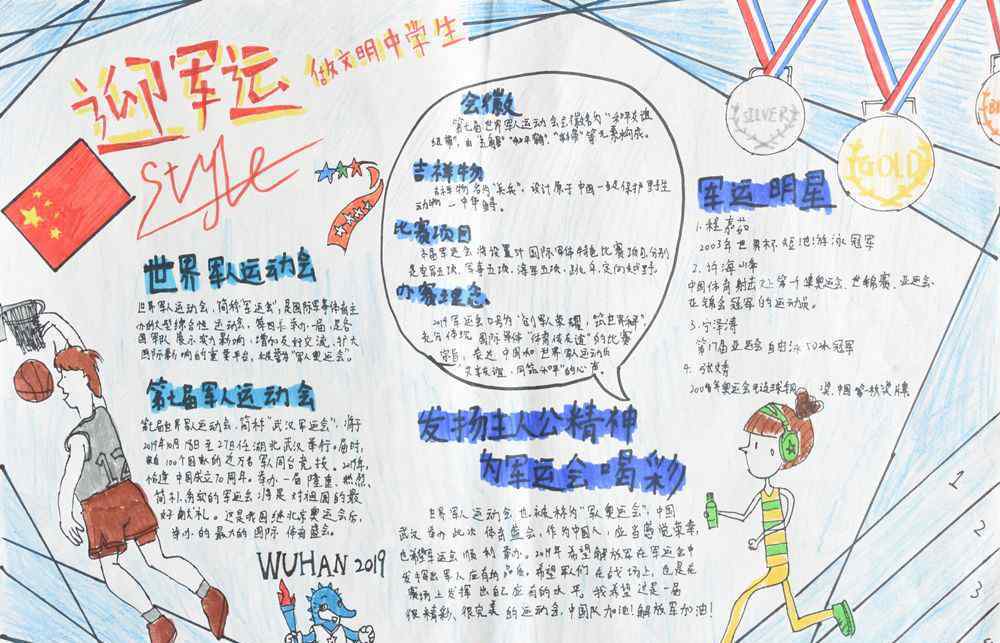 迎军运
做文明中学生
style
世界军人运动会
世界军人运动会,简称"军运会",是国际军事体育
办的大型综合性运动会,每四年举办一届,是各
国军队展示实力影响,增加友好交流,扩大
国际影响的重要平台,被誉为"军人奥运会"。
第七届军人运动会
第七届世界军人运动会,简称"武汉军运会",将于
2019年10月18日至27日在湖北武汉举行。届时,
100个国家的近万名军人同台竞技。2019年,
中国成立70周年。举办一届隆重、热烈、
简朴、务实的军运会将是对祖国的最
好献礼。这是我国继北京奥运会后,
举办的最大的国际体育盛会。
WUHAN 2019
会徽
第七届世界军人运动会会徽名为"和平友谊
纽带",由"五角星""和平鸽""彩带"等元素构成。
吉祥物
吉祥物名为"兵兵",设计原于中国一级保护野生
动物——中华鲟。
比赛项目
本届军运会将设置对国际军体特色比赛项目,分别
是空军五项、军事五项、海军五项、定向越野。
办赛理念
2019军运会口号为"创军人荣耀,筑世界和平",
充分传现国际军体"体育传友谊"的比赛
宗旨,表达中国和世界军人运动员
"共享友谊、同筑和平"的心声。
发扬主人公精神
为军运会喝彩
世界军人运动会也被称为"军奥运会",中国
武汉举办此次体育盛会,作为中国人,应当感觉荣幸,
也希望军运会顺利举办。2019年希望解放军在军运会中
发挥出军人应有的品质。希望军人们在战场上,也是在
赛场上发挥出自己应有的水平。我希望这是一届
很精彩、很完美的运动会,中国队加油!解放军加油!
军运明星
1.程嘉茹
2003年世界杯短池游泳冠军
2.许海峰
中国体育射击史上第一集奥运会、世锦赛、亚运会、
亚锦会冠军的运动员。
3.宁泽涛
第17届亚运会自由泳50米冠军
4.张靖
2008年奥运会
SILVER
GOLD
12
1
2
3